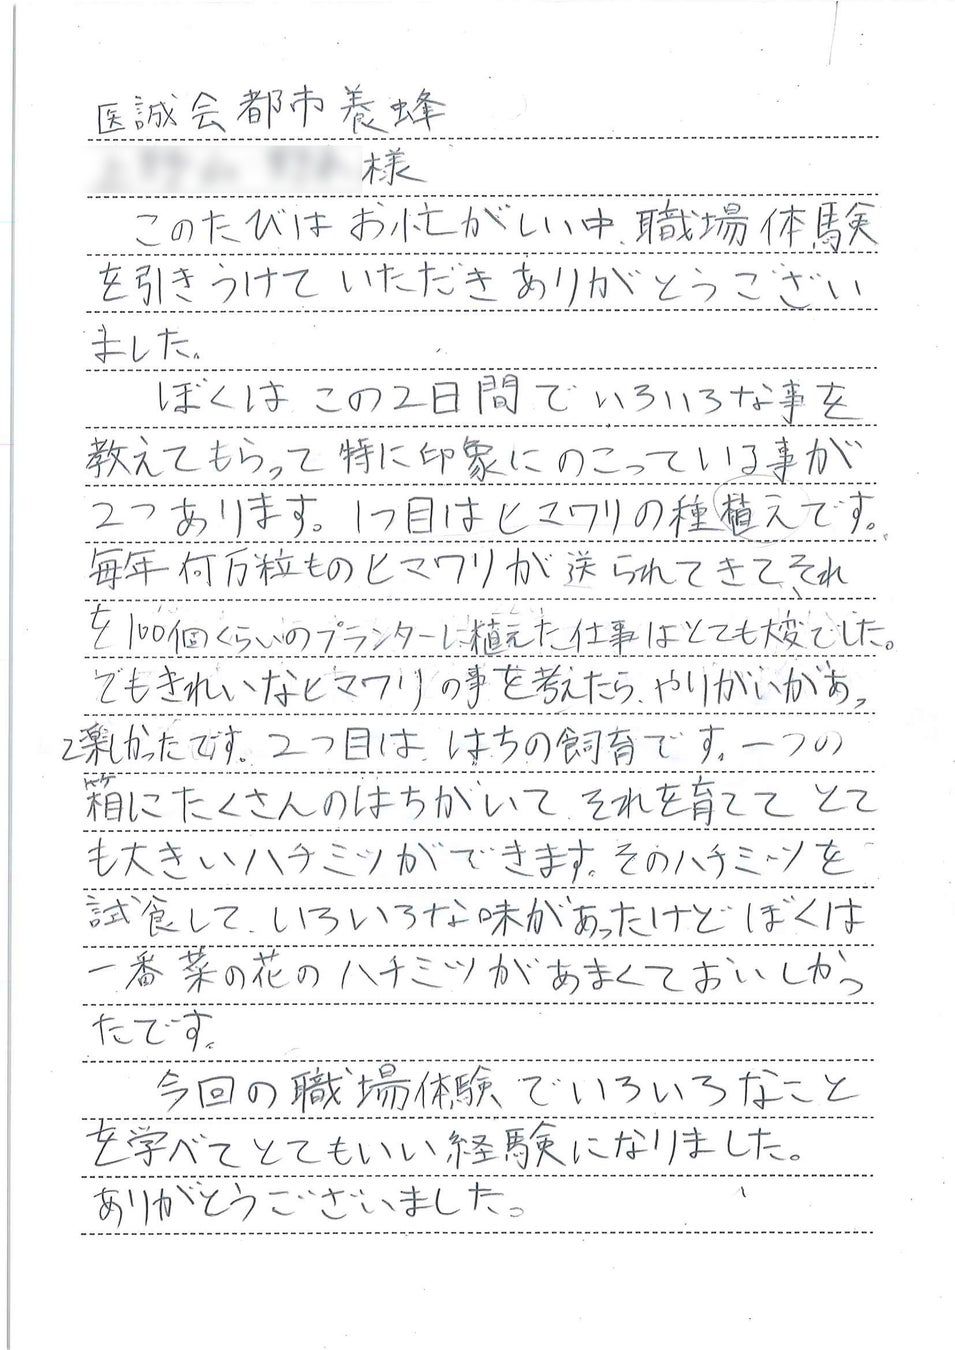 医誠会都市養蜂
様
このたびはお忙がしい中、職場体験
を引きうけていただきありがとうござい
ました。
ぼくはこの2日間でいろいろな事を
教えてもらって特に印象にのこっている事が
2つあります。1つ目はヒマワリの種植えです。
毎年何万粒ものヒマワリが送られてきて、それ
を100個くらいのプランターに植えた仕事はとても大変でした。
でもきれいなヒマワリの事を考えたら、やりがいがあっ
て楽しかったです。2つ目は、はちの飼育です。一つの
箱にたくさんのはちがいて、それを育てて とて
も大きいハチミツができます。そのハチミツを
試食して、いろいろな味があったけど ぼくは
一番菜の花のハチミツがあまくておいしかっ
たです。
今回の職場体験でいろいろなこと
を学べてとてもいい経験になりました。
ありがとうございました。